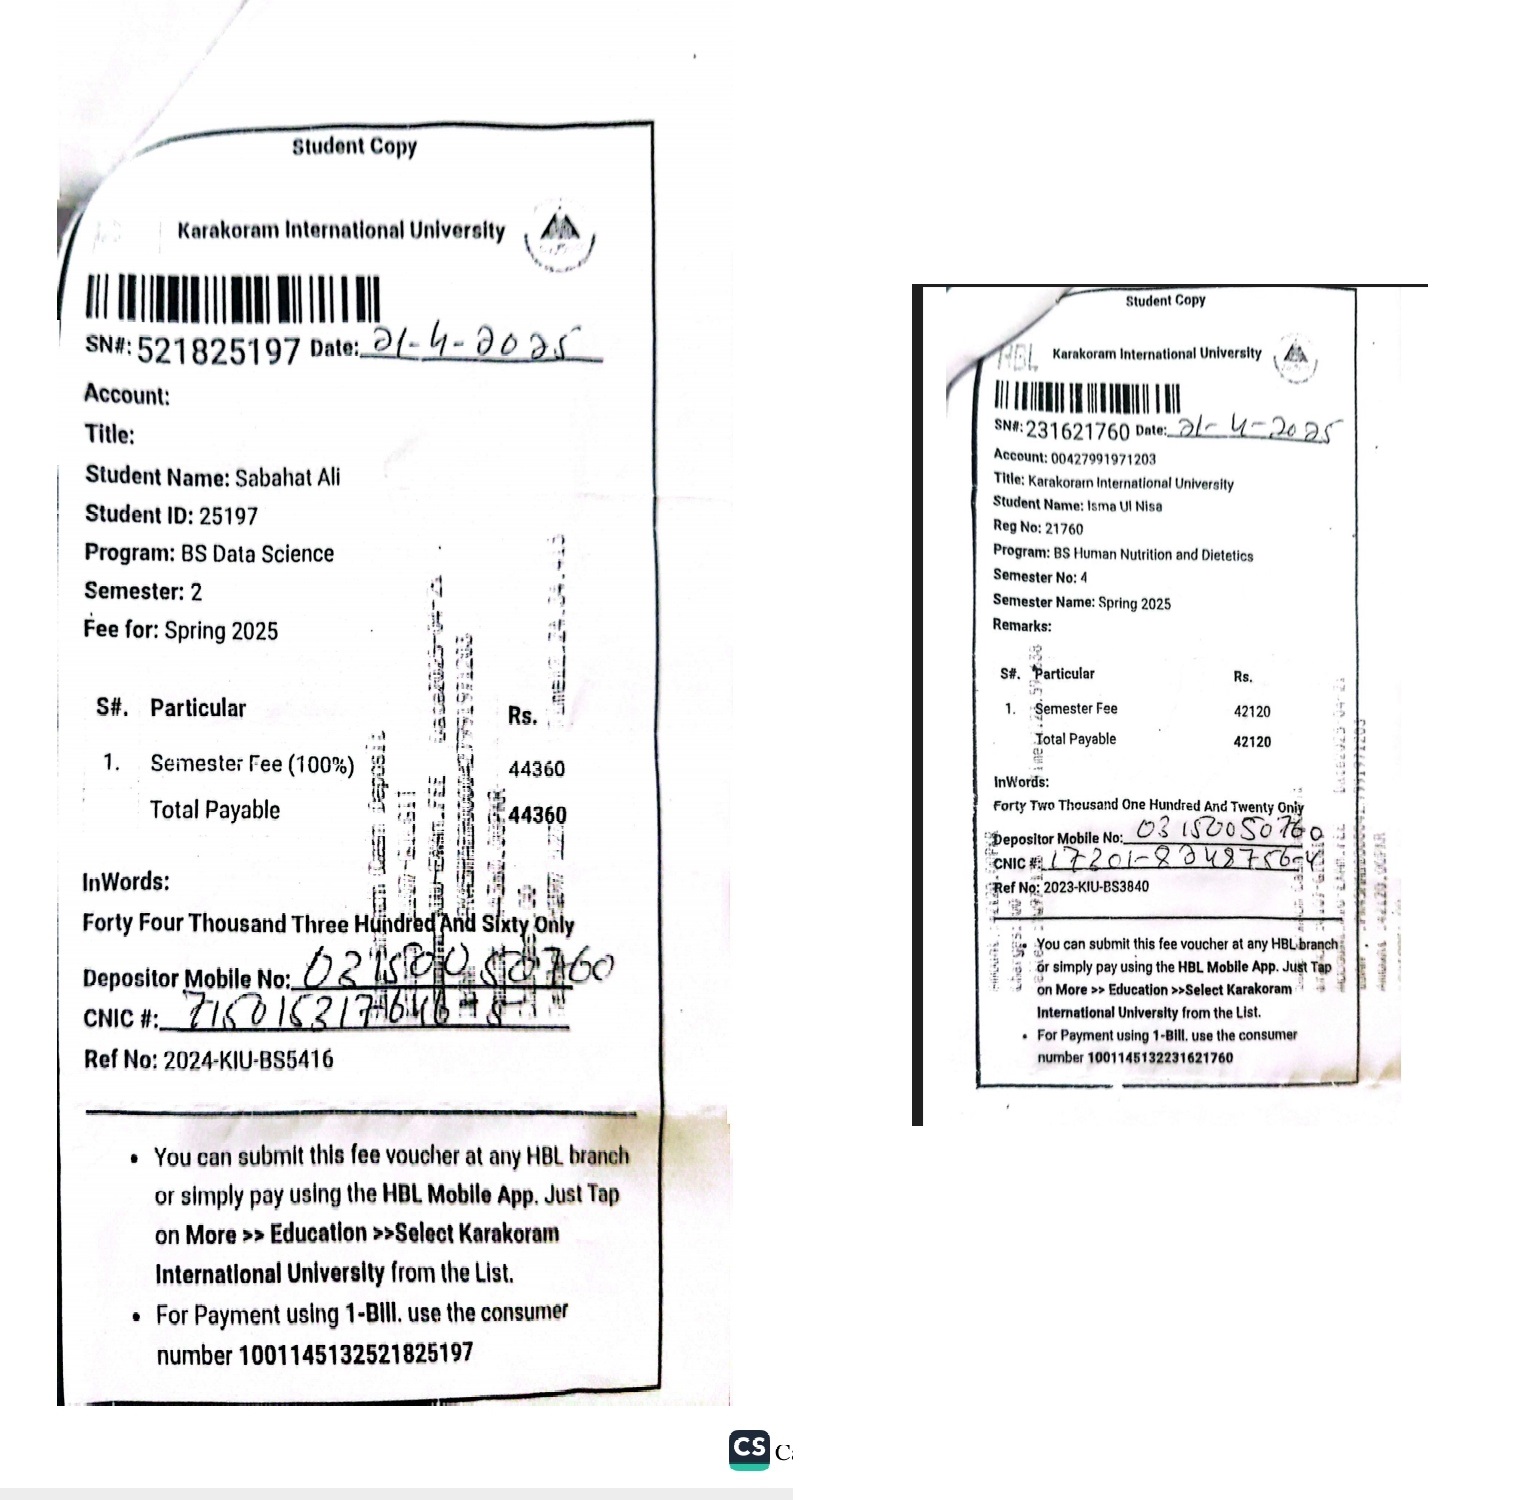 Student Copy
Karakoram International University
SN#: 521825197 Date: 21-4-2025
Account:
Title:
Student Name: Sabahat Ali
Student ID: 25197
Program: BS Data Science
Semester: 2
Fee for: Spring 2025
S#. Particular Rs.
1. Semester Fee (100%) 44360
Total Payable 44360
InWords:
Forty Four Thousand Three Hundred And Sixty Only
Depositor Mobile No: 03150050760
CNIC #:
Ref No: 2024-KIU-BS5416
• You can submit this fee voucher at any HBL branch
or simply pay using the HBL Mobile App. Just Tap
on More >> Education >>Select Karakoram
International University from the List.
• For Payment using 1-Bill. use the consumer
number 1001145132521825197
CS
Student Copy
HBL Karakoram International University
SN#: 231621760 Date: 21-4-2025
Account: 00427991971203
Title: Karakoram International University
Student Name: Isma Ul Nisa
Reg No: 21760
Program: BS Human Nutrition and Dietetics
Semester No: 4
Semester Name: Spring 2025
Remarks:
S#. Particular Rs.
1. Semester Fee 42120
Total Payable 42120
InWords:
Forty Two Thousand One Hundred And Twenty Only
Depositor Mobile No: 03150050760
CNIC #: 17201-8248756-4
Ref No: 2023-KIU-BS3840
• You can submit this fee voucher at any HBL branch
or simply pay using the HBL Mobile App. Just Tap
on More >> Education >>Select Karakoram
International University from the List.
• For Payment using 1-Bill. use the consumer
number 1001145132231621760